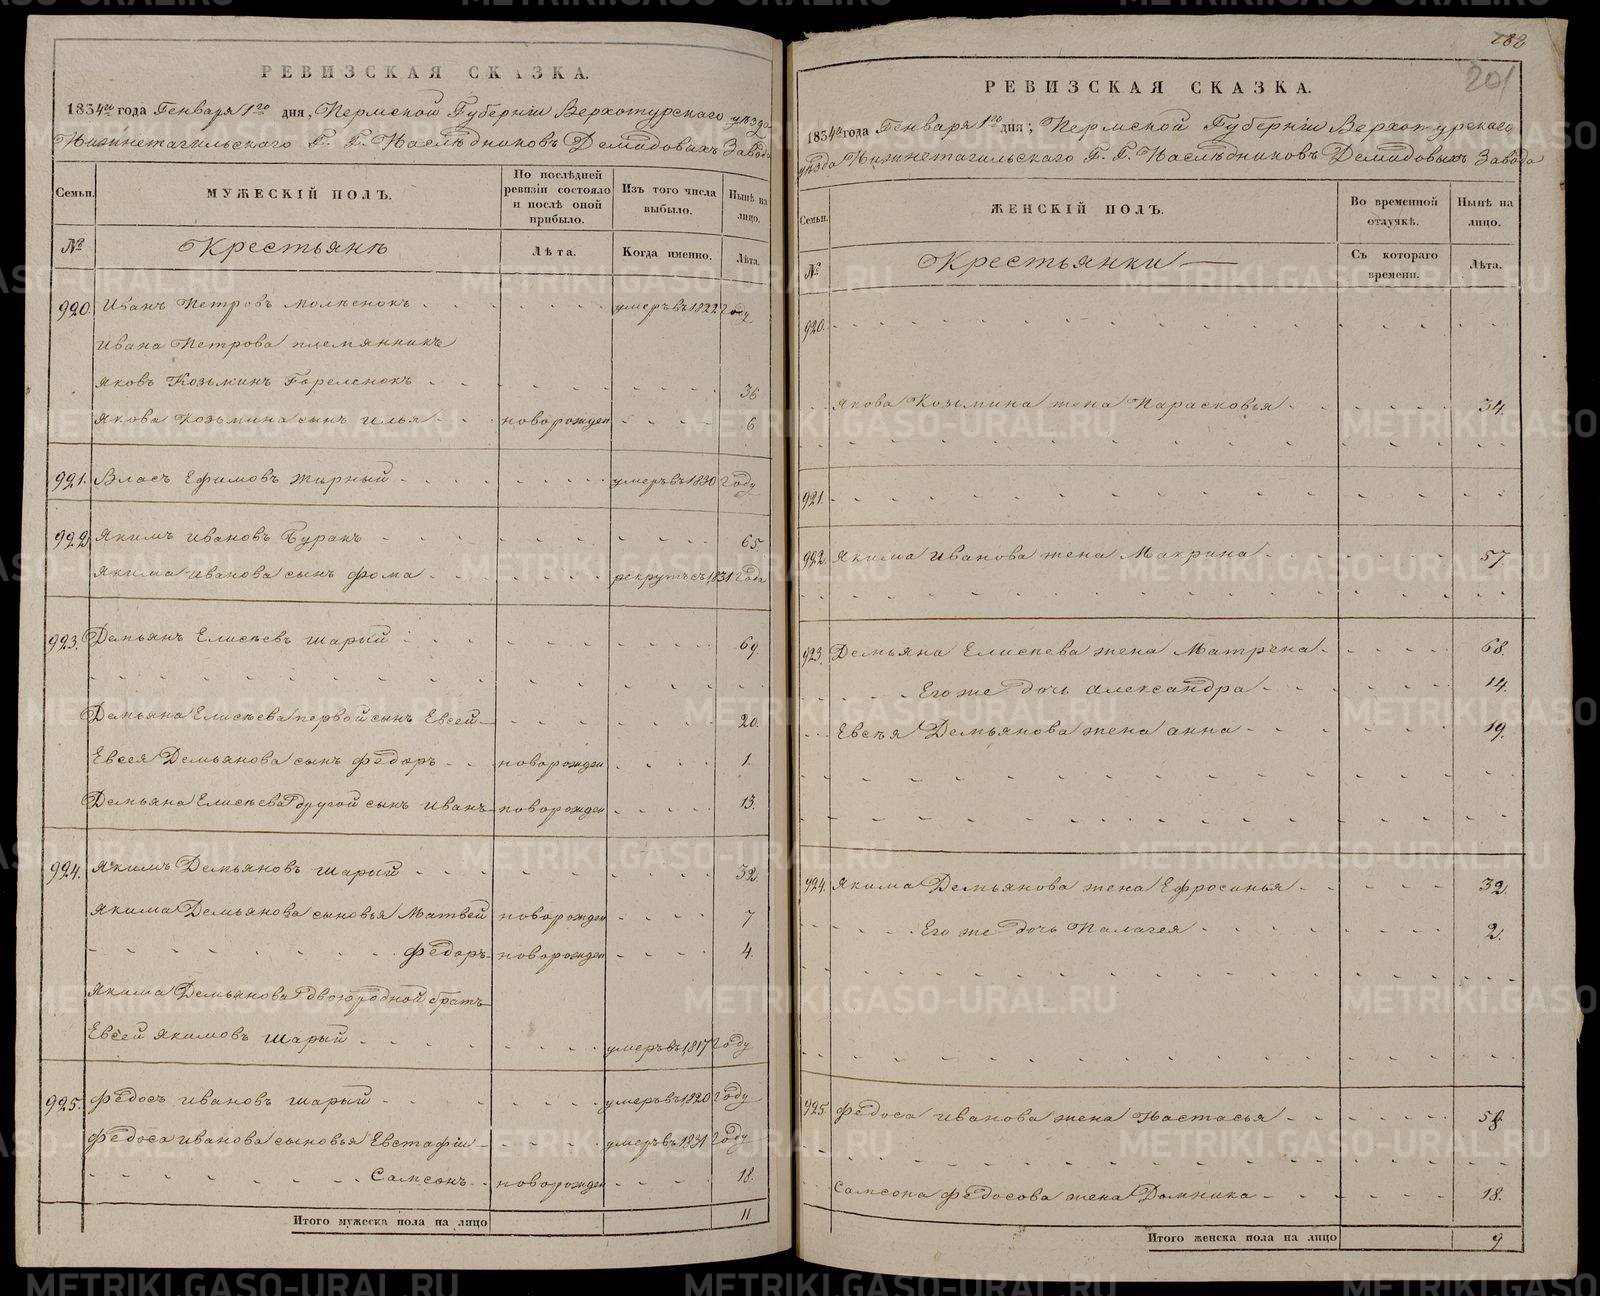 РЕВИЗСКАЯ СКАЗКА.
1834го года Генваря 1го дня, Пермской Губернiи Верхотурского уезда
Нижнетагильского Г. Г. Наслѣдниковъ Демидовыхъ Завода
Семьи. МУЖЕСКIЙ ПОЛЪ. По послѣдней ревизiи состояло и послѣ оной прибыло. Изъ того числа выбыло. Нынѣ на лицо.
№ Крестьянѣ Лѣта. Когда именно. Лѣта.
920. Иванъ Петровъ умеръ въ 1822 году
Ивана Петрова племянникъ
Яковъ Козьминъ Гореленокъ 36
Якова Козьмина сынъ Илья новорожден 6
921. Власъ Ефимовъ Жирный умеръ въ 1830 году
922. Якимъ Ивановъ Буракъ 65
Якима Иванова сынъ Фома рекрутъ съ 1831 года
923. Демьянъ Елисѣевъ Шарый 69.
Демьяна Елисѣева первой сынъ Евсей 20.
Евсея Демьянова сынъ Федоръ новорожден 1.
Демьяна Елисѣева другой сынъ Иванъ новорожден 13.
924. Якимъ Демьяновъ Шарый 32.
Якима Демьянова сыновья Матвей новорожден 7
Федоръ новорожден 4.
Якима Демьянова двоюродной братъ
Евсей Якимовъ Шарый умеръ въ 1817 году
925. Федосъ Ивановъ Шарый умеръ въ 1820 году
Федоса Иванова сыновья Евстафiй умеръ въ 1831 году
Самсонъ новорожден 18.
Итого мужеска пола на лицо 11
182
201
РЕВИЗСКАЯ СКАЗКА.
1834го года Генваря 1го дня; Пермской Губернiи Верхотурского
уезда Нижнетагильского Г. Г. Наслѣдниковъ Демидовыхъ Завода
Семьи. ЖЕНСКIЙ ПОЛЪ. Во временной отлучкѣ. Нынѣ на лицо.
№ Крестьянки Съ котораго времени. Лѣта.
920.
Якова Козьмина жена Парасковья 34.
921.
922. Якима Иванова жена Макрина 57.
923. Демьяна Елисѣева жена Матрена 68.
Его же дочь Александра 14.
Евсѣя Демьянова жена Анна 19.
924. Якима Демьянова жена Ефросинья 32.
Его же дочь Палагея 2.
925. Федоса Иванова жена Настасья 58.
Самсона Федосова жена Домника 18.
Итого женска пола на лицо 9
METRIKI.GASO-URAL.RU